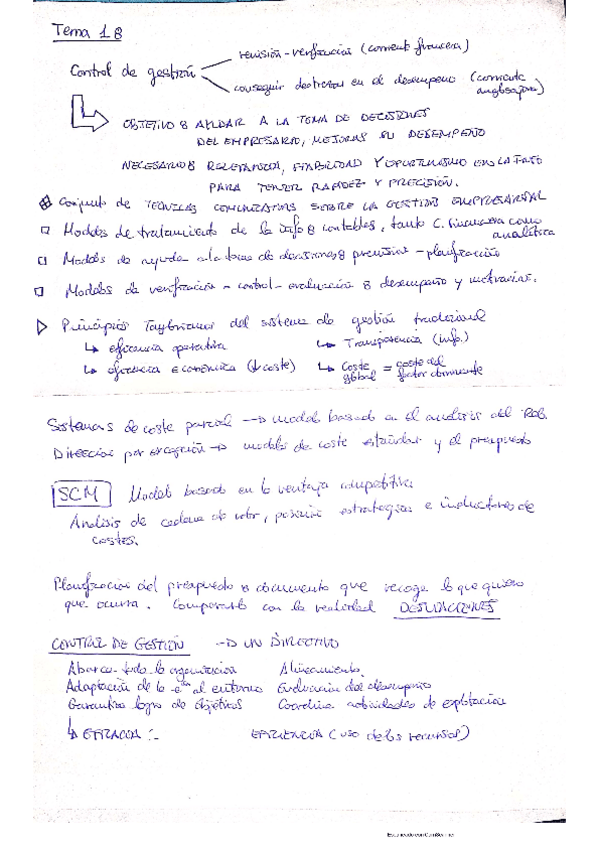 Tema 1 8
Control de gestión
revisión-verificación (corriente financiera)
conseguir destrezas en el desempeño (corriente anglosajona)
OBJETIVO 8 AYUDAR A LA TOMA DE DECISIONES
DEL EMPRESARIO, MEJORAR SU DESEMPEÑO
NECESARIO 8 RELEVANCIA, FIABILIDAD Y OPORTUNISMO EN LA INFO
PARA TENER RAPIDEZ Y PRECISIÓN.
Conjunto de TÉCNICAS COMUNICATIVAS SOBRE LA GESTIÓN EMPRESARIAL
Modelos de tratamiento de la info 8 contables, tanto C. financiera como analítica
Modelos de ayuda a la toma de decisiones 8 previsión - planificación
Modelos de verificación - control - evaluación 8 desempeño y motivación.
Principios Taylorianos del sistema de gestión tradicional
↳ eficiencia operativa ↳ Transparencia (info.)
↳ eficiencia económica (↓ coste) ↳ Coste global = coste del factor dominante
Sistemas de coste parcial → modelo basado en el análisis del Rdo.
Dirección por excepción → modelo de coste estándar y el presupuesto
SCM Modelo basado en la ventaja competitiva
Análisis de cadena de valor, posición estratégica e inductores de
costes.
Planificación del presupuesto 8 documento que recoge lo que quiero
que ocurra. Compararlo con la realidad DESVIACIONES
CONTROL DE GESTIÓN → UN DIRECTIVO
Abarca toda la organización Alineamiento
Adaptación de la eª al entorno Evaluación del desempeño
Garantiza logro de objetivos Coordina actividades de explotación
↳ EFICACIA :- EFICIENCIA (uso de los recursos)
Escaneado con CamScanner